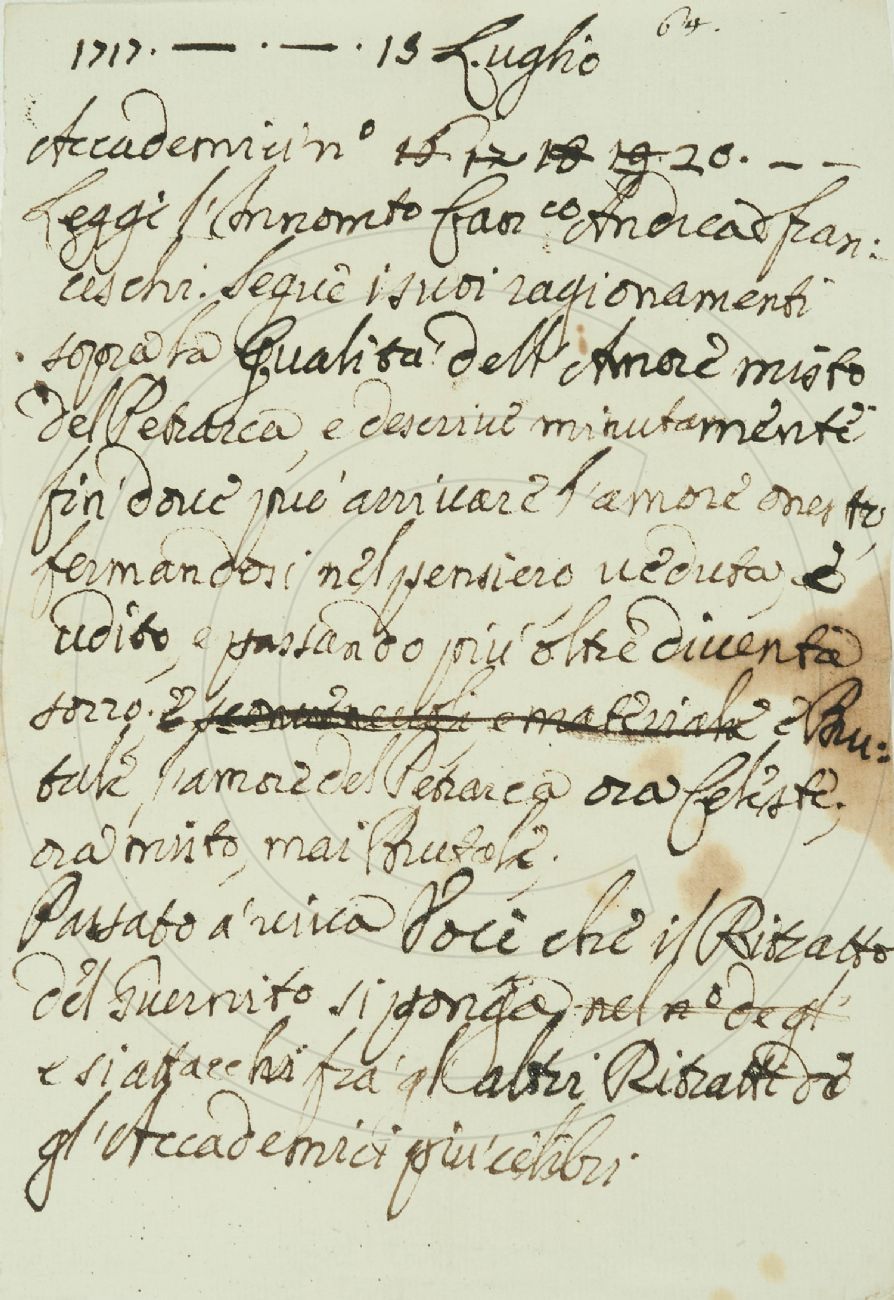 64.
1717. — . — . 13 Luglio
Accademici n° 16 17 18 19 20. — —
Leggé l'Innomto Can.co Andrea Fran:
ceschi. Seguè i suoi ragionamenti
sopra la Qualità dell'Amore misto
del Petrarca, e descrive minutamente
fin dove può arrivare l'amore onesto,
fermandosi nel pensiero, veduta, e
udito, e passando più oltre diventa
sozzo. e e materiale e Bru:
tale, l'amore del Petrarca ora Celeste,
ora misto, mai Brutale.
Passato a viva Voce che il Ritratto
del Guernito si ponga nel n° degl'
e si attacchi fra gl'altri Ritratti de
gl'Accademici più celibri